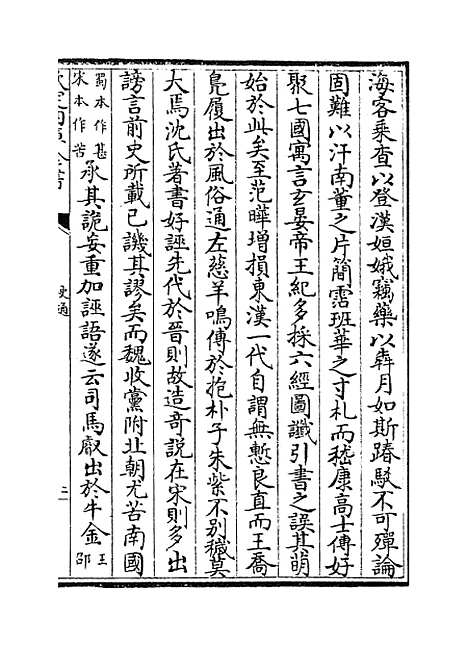 海客乘查以登漢姮娥竊藥以犇月如斯踳駁不可殫論
固難以汙南董之片簡霑班華之寸札而嵇康高士傳好
聚七國寓言玄晏帝王紀多採六經圖讖引書之誤其萌
始於此矣至范曄增損東漢一代自謂無慙良直而王喬
鳧履出於風俗通左慈羊鳴傳於抱朴子朱紫不別穢莫
大焉沈氏著書好誣先代於晉則故造奇說在宋則多出
謗言前史所載已譏其謬矣而魏收黨附北朝尤苦南國
蜀本作甚宋本作苦承其詭妄重加誣語遂云司馬叡出於牛金王邵
史通